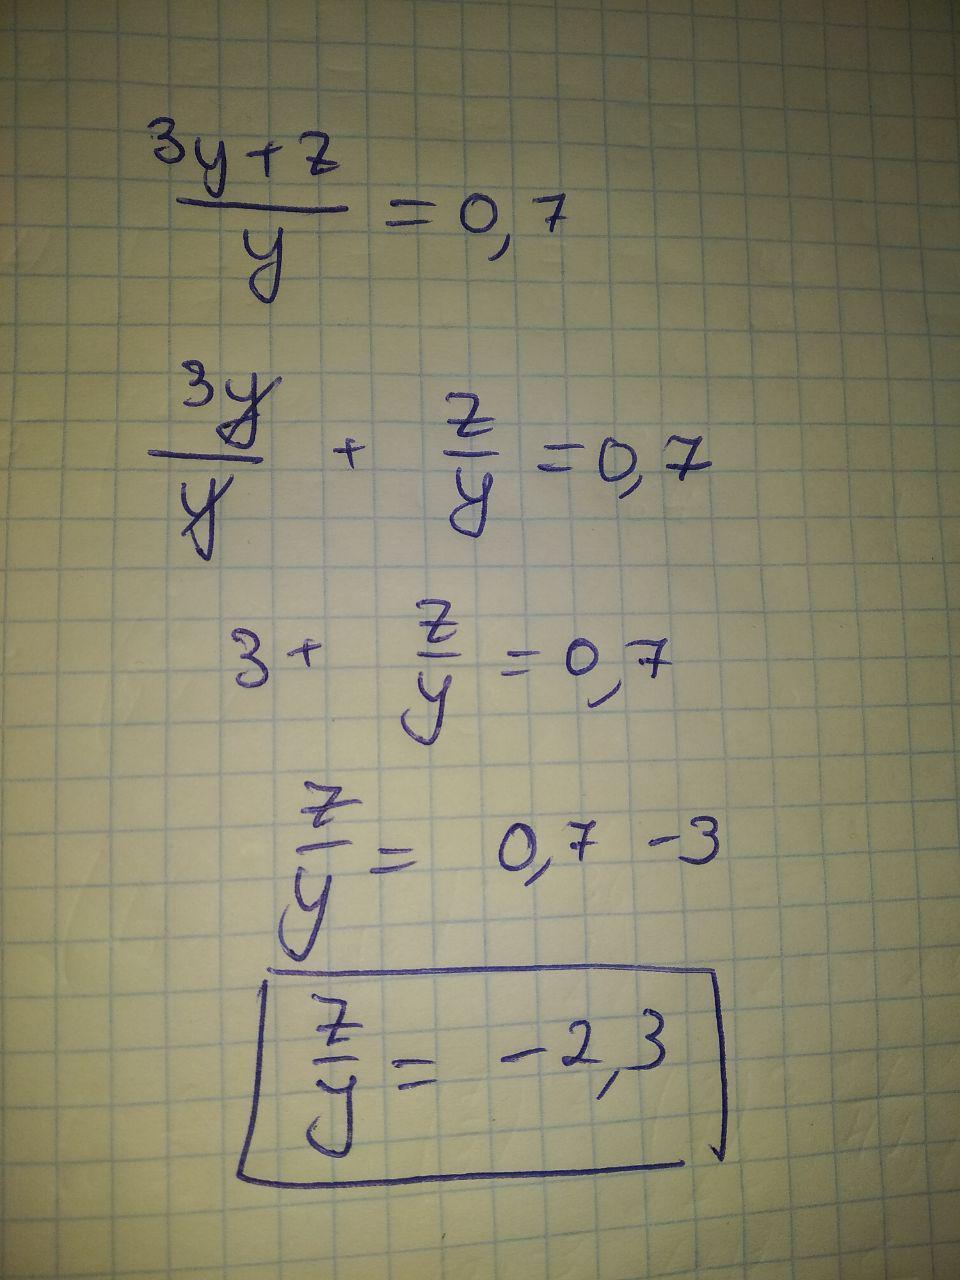 (3y+z)/y = 0,7
3y/y + z/y = 0,7
3 + z/y = 0,7
z/y = 0,7 - 3
z/y = -2,3